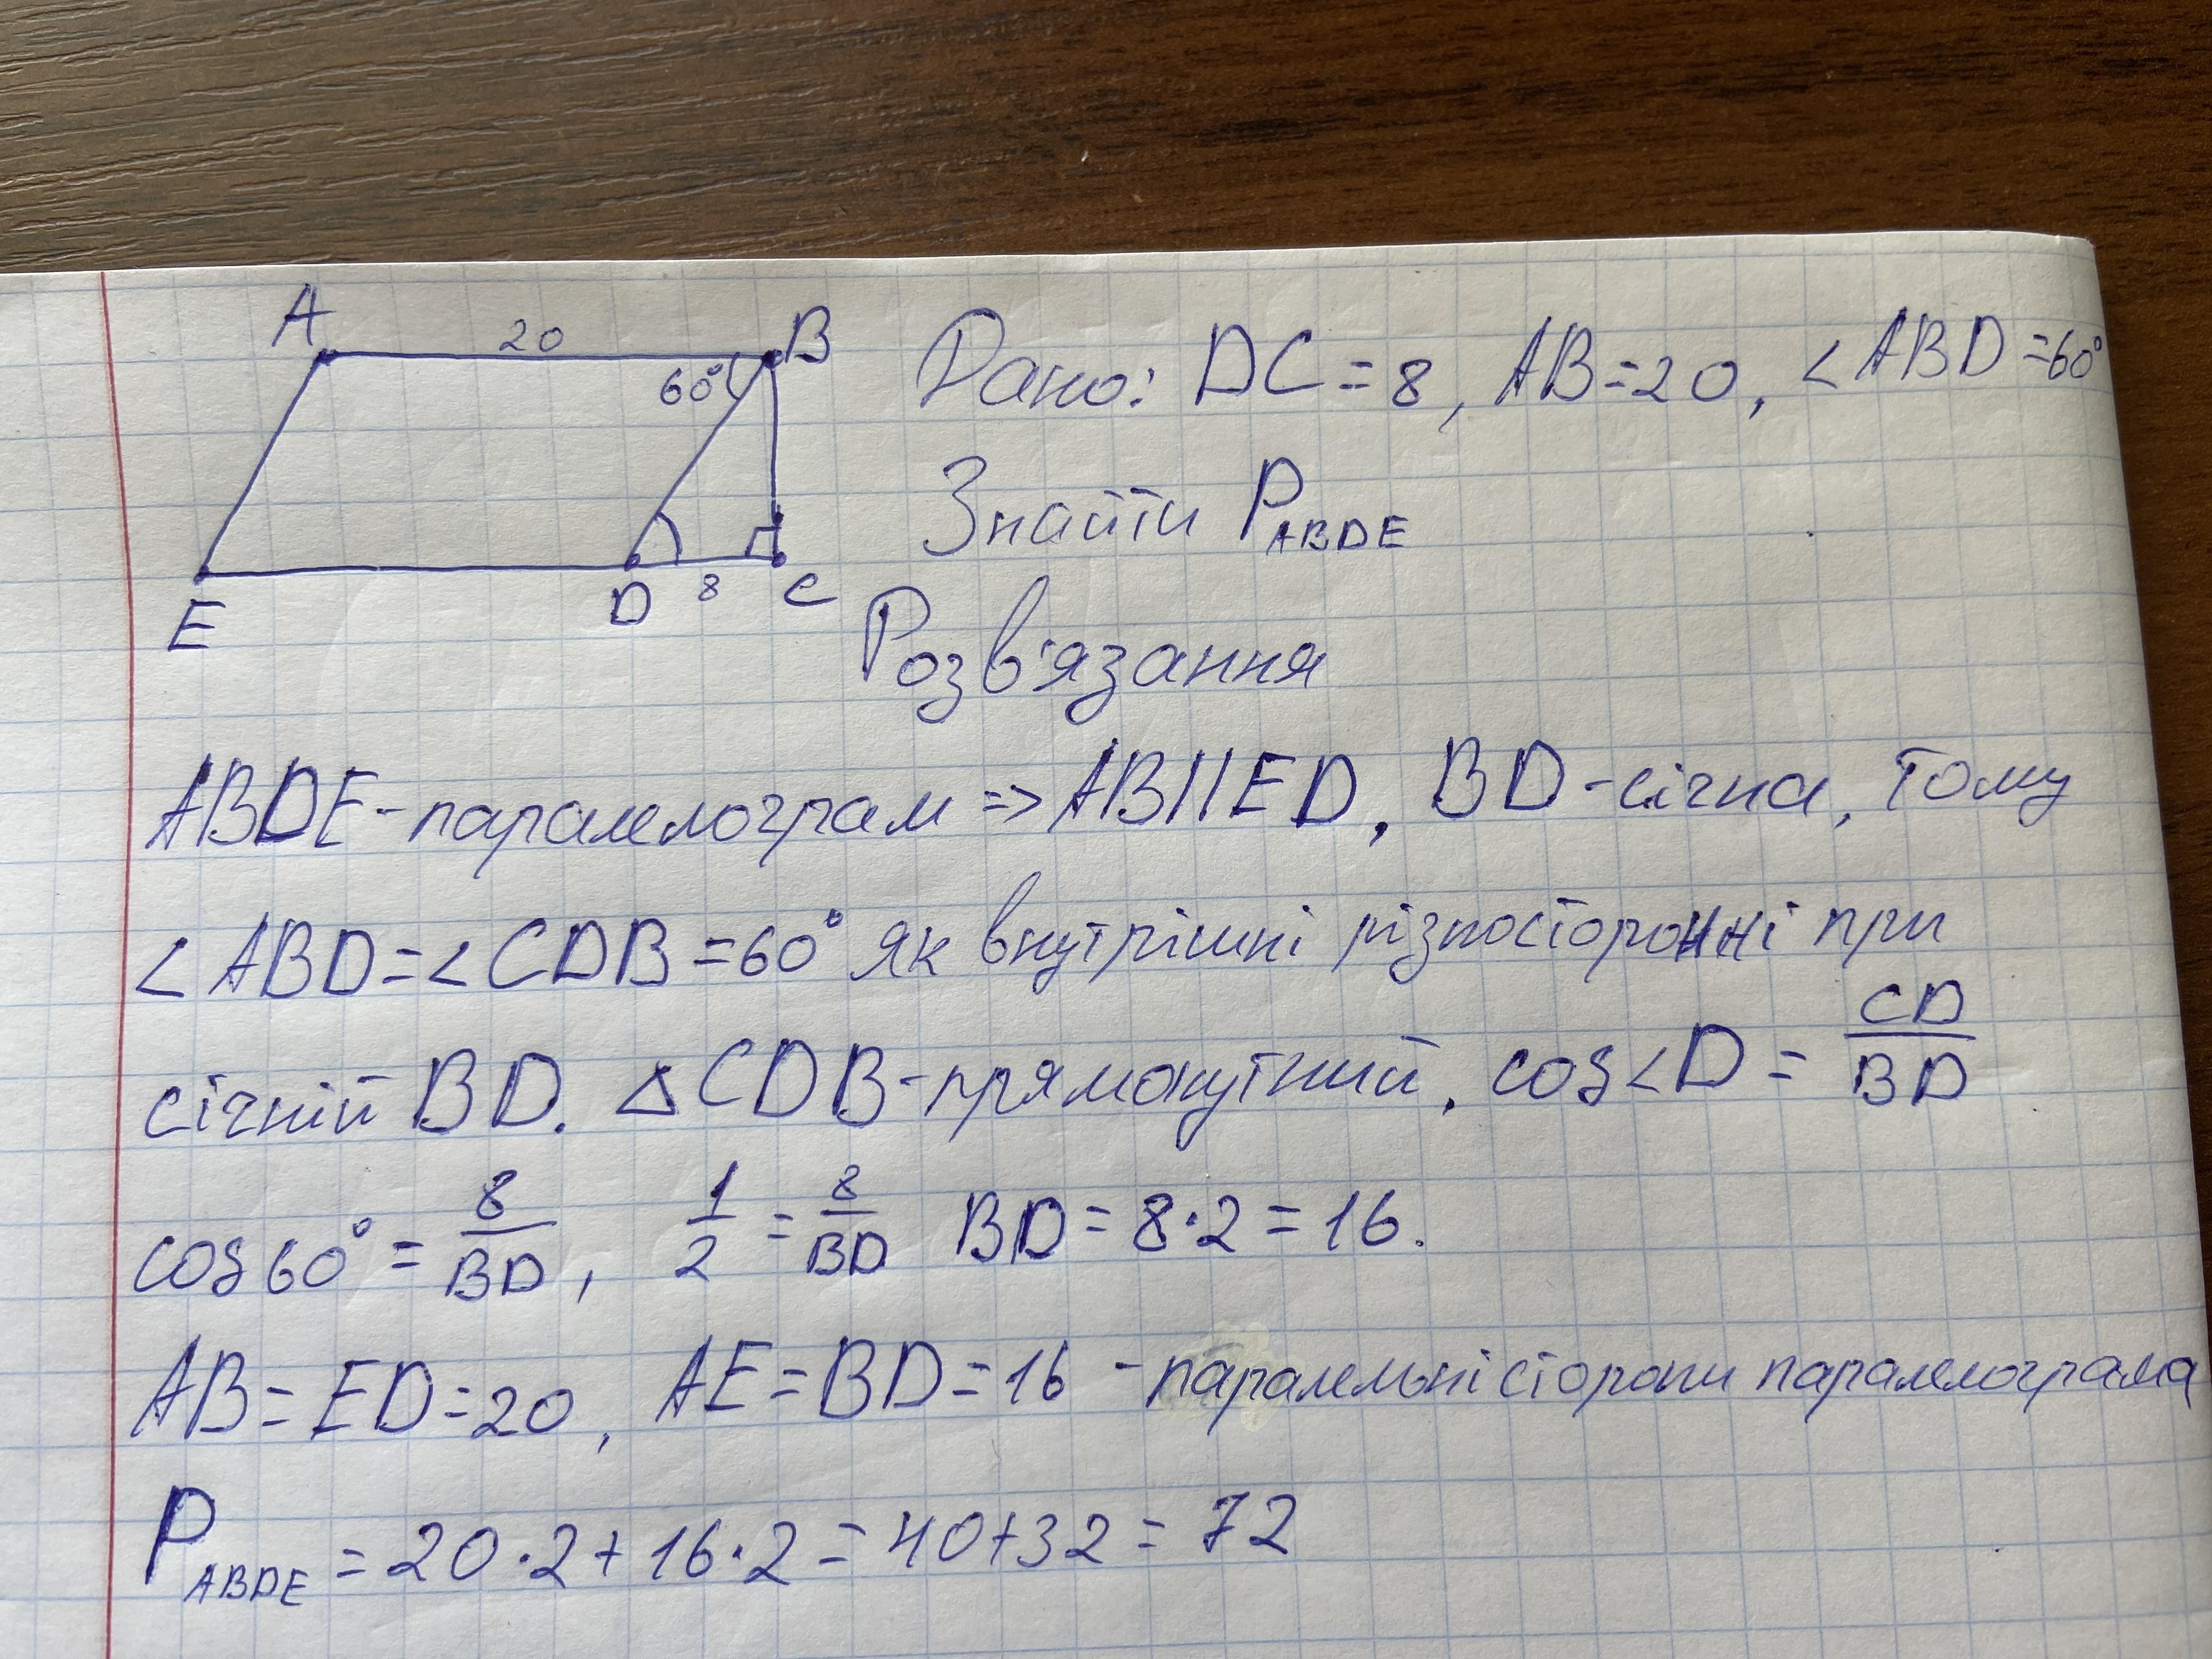 A 20 B
60°
E D 8 C
Дано: DC = 8, AB = 20, ∠ABD = 60°
Знайти P_ABDE
Розв'язання
ABDE - паралелограм => AB||ED, BD - січна, тому
∠ABD = ∠CDB = 60° як внутрішні різносторонні при
січній BD. △CDB - прямокутний. cos∠D = CD/BD
cos60° = 8/BD, 1/2 = 8/BD BD = 8·2 = 16.
AB = ED = 20, AE = BD = 16 - паралельні сторони паралелограма
P_ABDE = 20·2 + 16·2 = 40 + 32 = 72